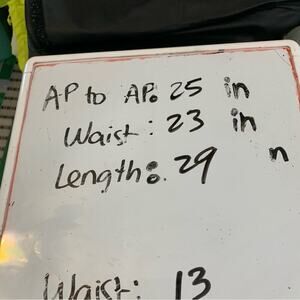 AP to AP: 25 in
Waist: 23 in
Length: 29 n
Waist: 13